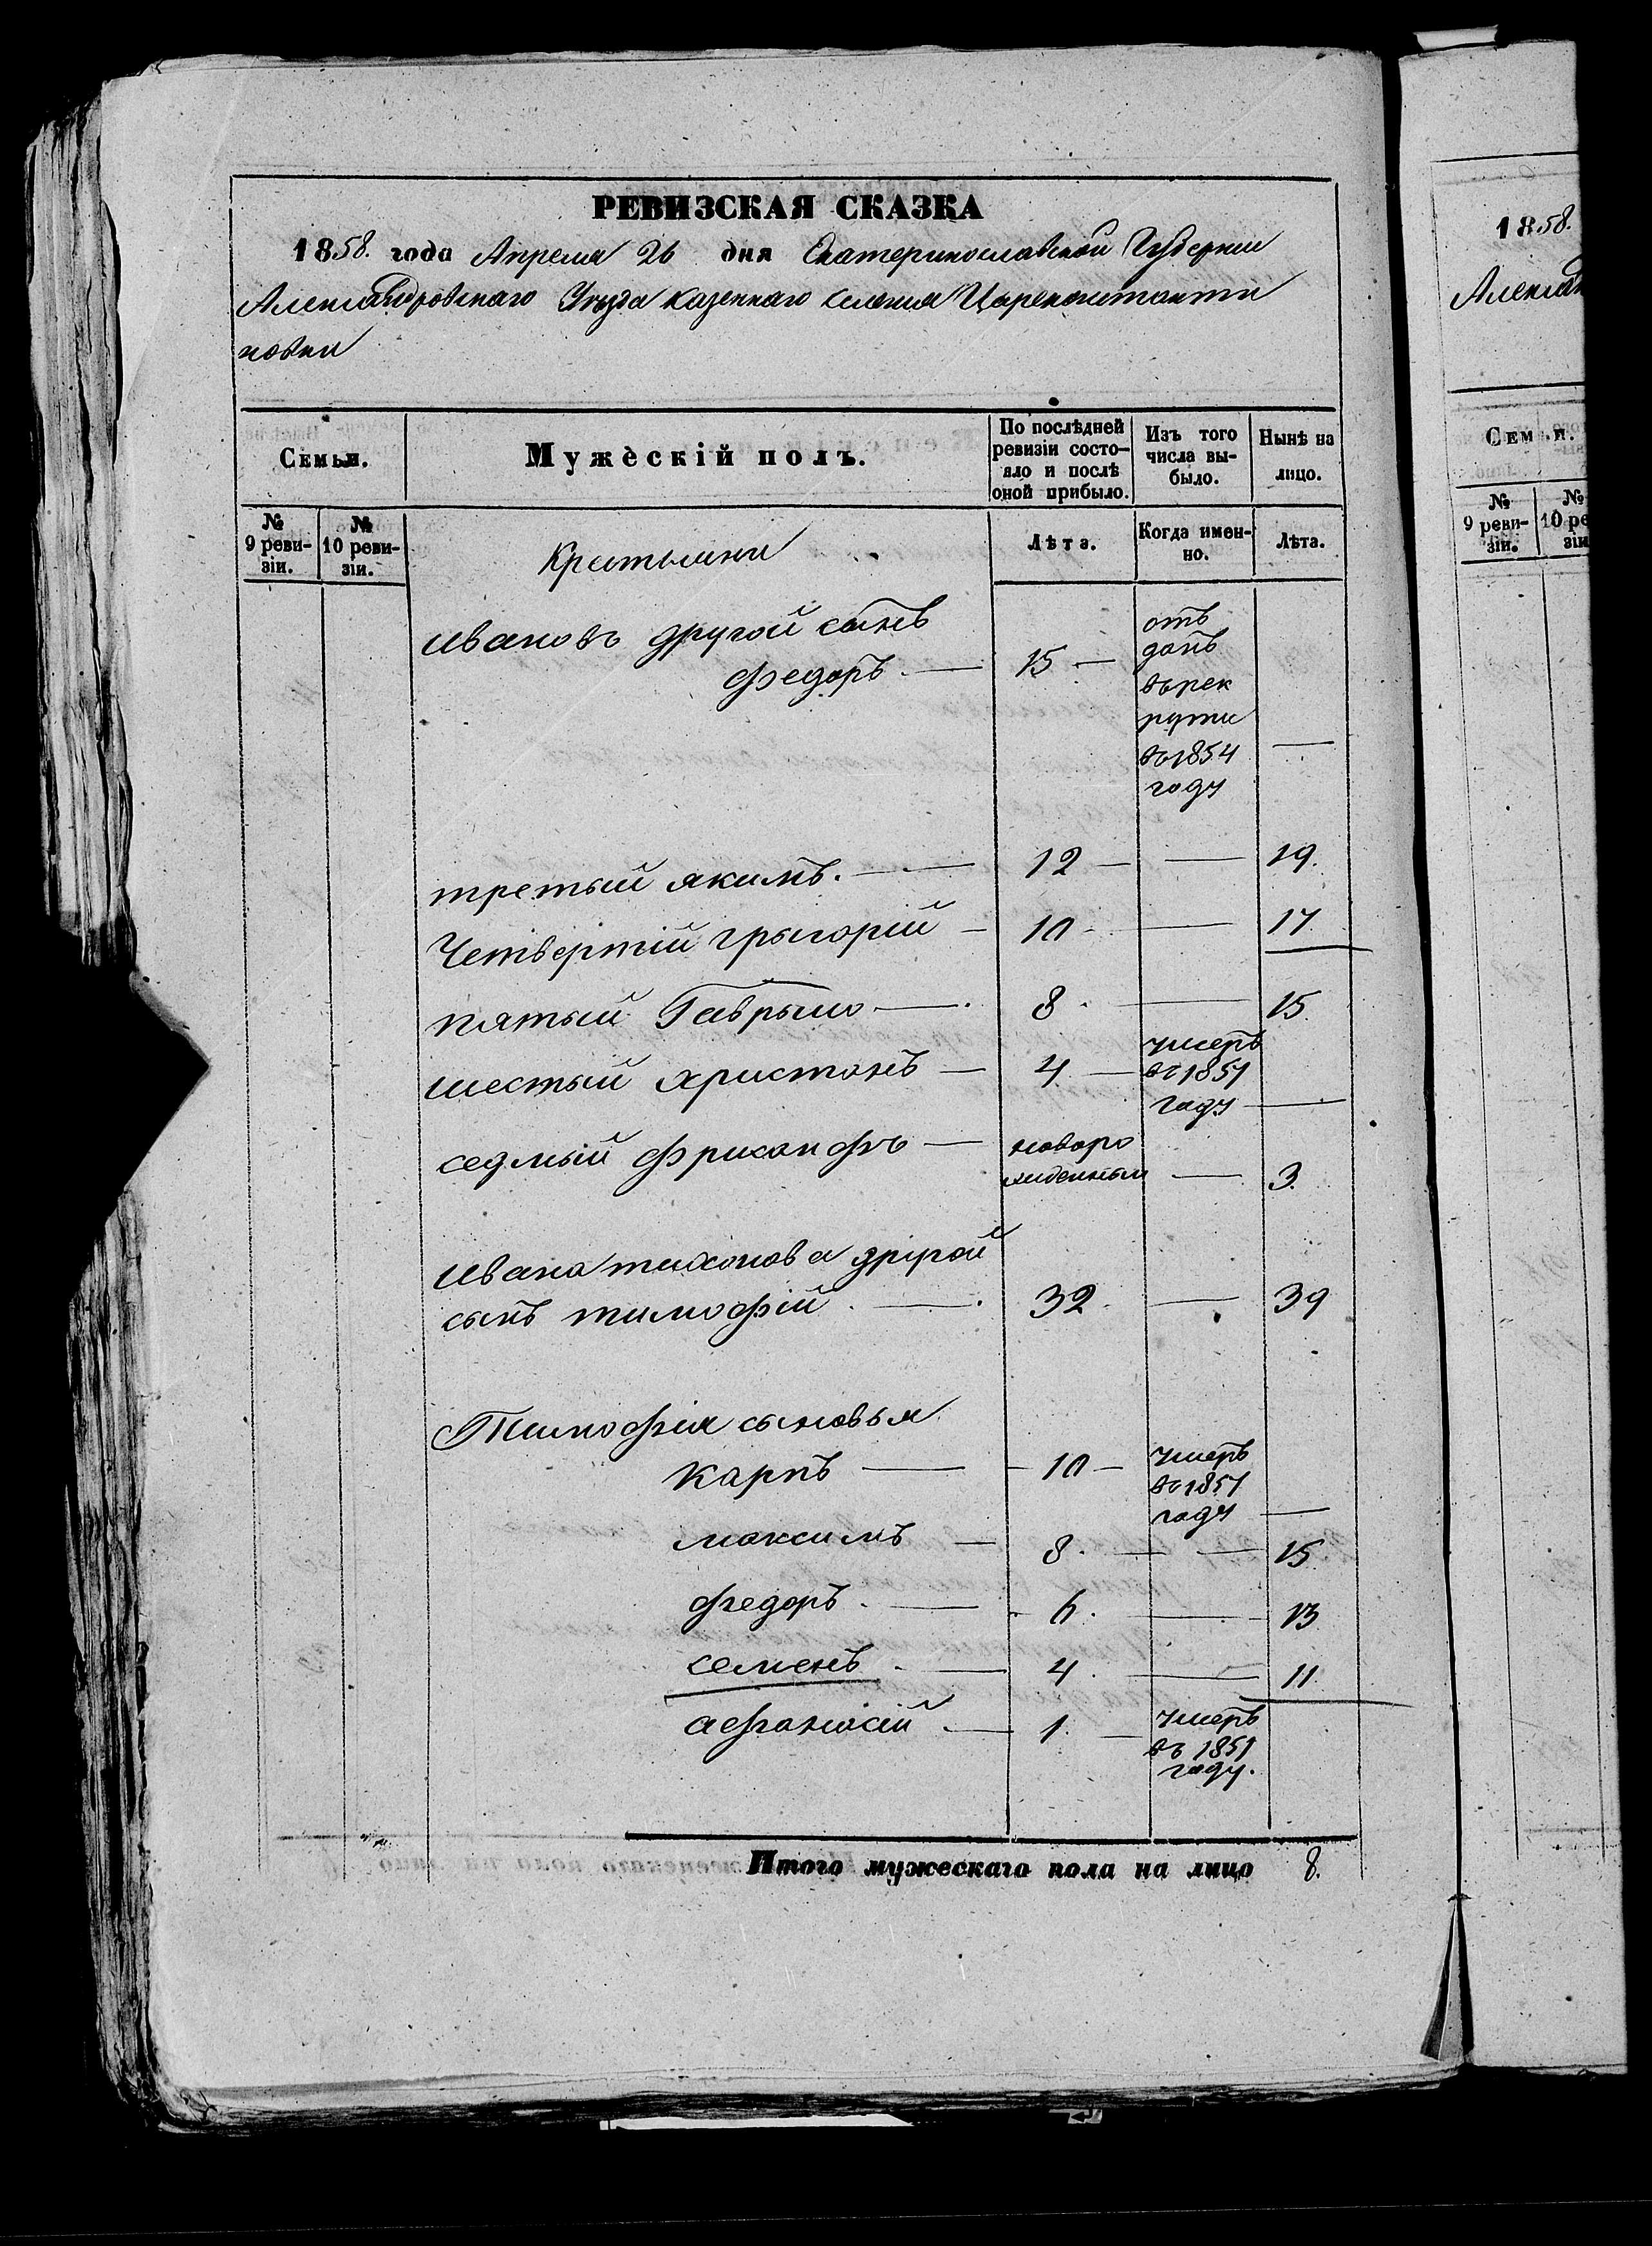 РЕВИЗСКАЯ СКАЗКА
1858. года Апреля 26 дня Екатеринославской Губернии
Александровскаго Уезда казеннаго селения Цареконстанти
новки
Семьи.
Мужескій полъ.
По послѣдней ревизіи состо-
яло и послѣ
оной прибыло.
Изъ того числа вы-
было.
Нынѣ на
лицо.
№ 9 реви-
зіи.
№ 10 реви-
зіи.
Крестьяни
Лѣта.
Когда имен-
но.
Лѣта.
Ивановъ другой сынъ
Федоръ. — 15 —
отъ
данъ
въ рек
рути
въ 1854 —
году
третый якимъ. — 12 — — 19.
Четвертій Грыгорій — 10 — — 17.
пятый Гаврыло — 8 — 15.
шестый Христанъ — 4 —
умеръ
въ 1851
году —
седмый Фрисанфъ — новоро
жденный — 3.
Ивана тихонова другой
сынъ тимофій. — 32. — 39
Тимофія сыновья
Карпъ — 10 —
умеръ
въ 1851
году —
максимъ — 8. — 15
федоръ. — 6. — 13
семенъ. — 4. — 11.
афанасій. — 1. —
умеръ
въ 1851
году.
Итого мужескаго пола на лицо 8.
1858.
Алексан
Семьи.
№ 9 реви-
зіи.
№ 10 ре
зіи